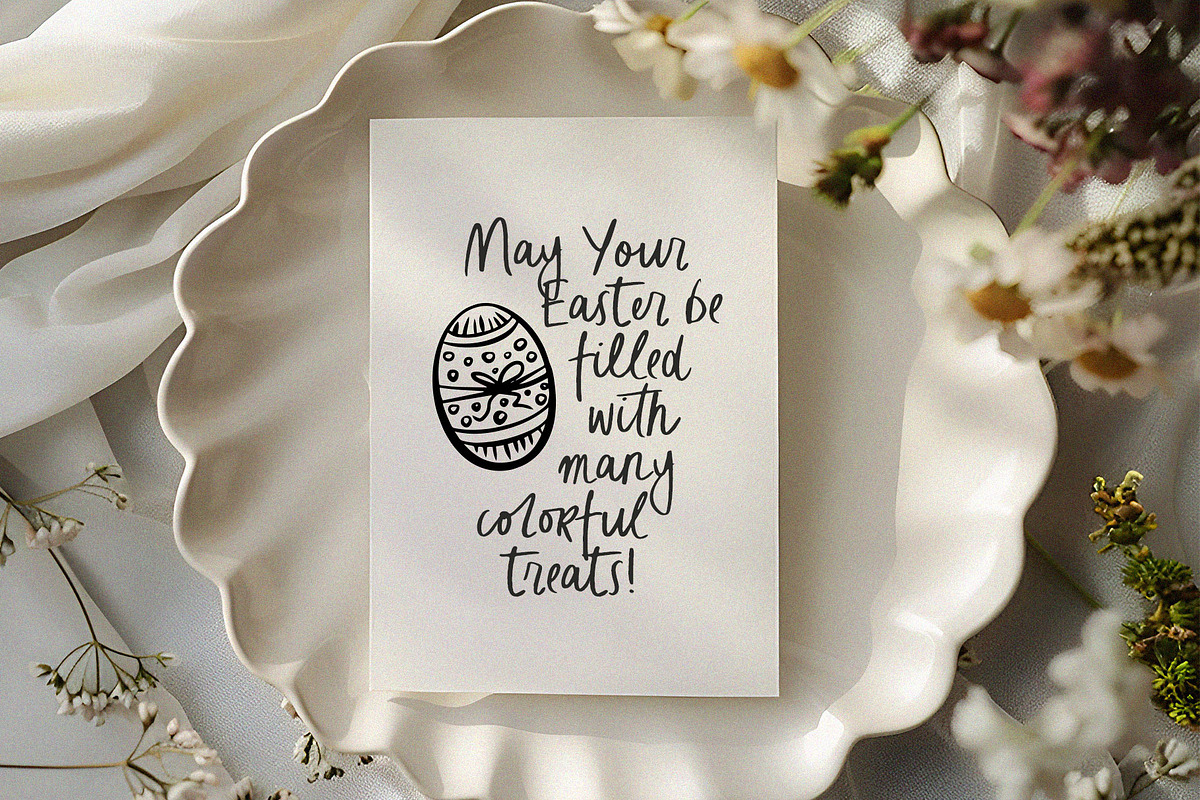 May Your
Easter be
filled
with
many
colorful
treats!